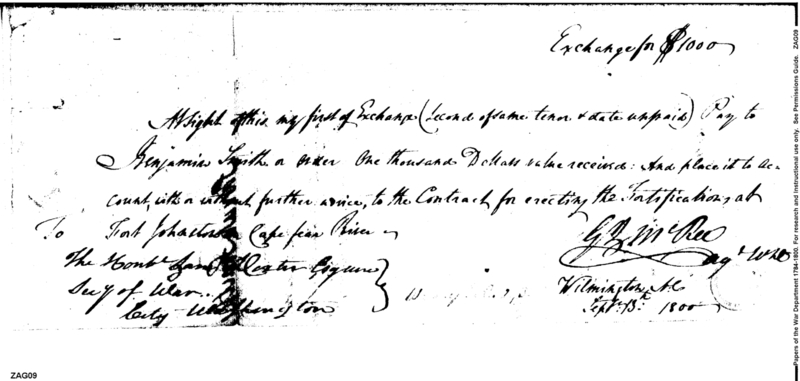 Exchange for $1000
At sight of this my first of Exchange (second of same tenor & date unpaid) Pay to
Benjamin Smith or order One thousand Dollars value received: And place it to Ac-
count, with or without further advice, to the Contract for erecting the Fortifications at
Fort Johnston Cape fear River
G J McRee
Agt War
To
The Honble Saml Dexter Esquire
Secy of War
City Washington
Wilmington, NC
Septr 13th 1800
ZAG09
Papers of the War Department 1784-1800. For research and instructional use only. See Permissions Guide. ZAG09